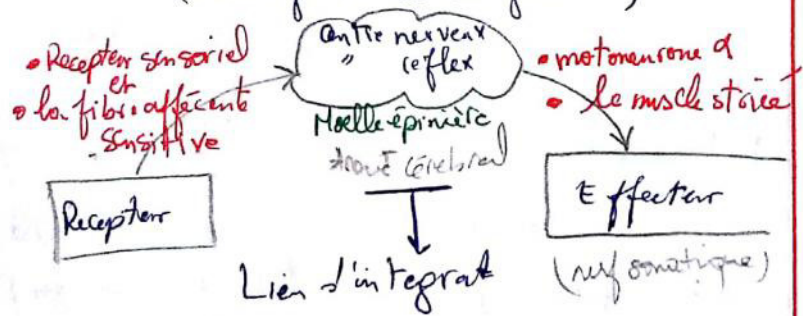 • Recepteur sensoriel
et
• la fibre afférente
sensitive
Centre nerveux
" reflex
Moelle épinière
tronc cérébral
• motoneurone α
• le muscle striée
Recepteur
Effecteur
(ref somatique)
Lieu d'integrat